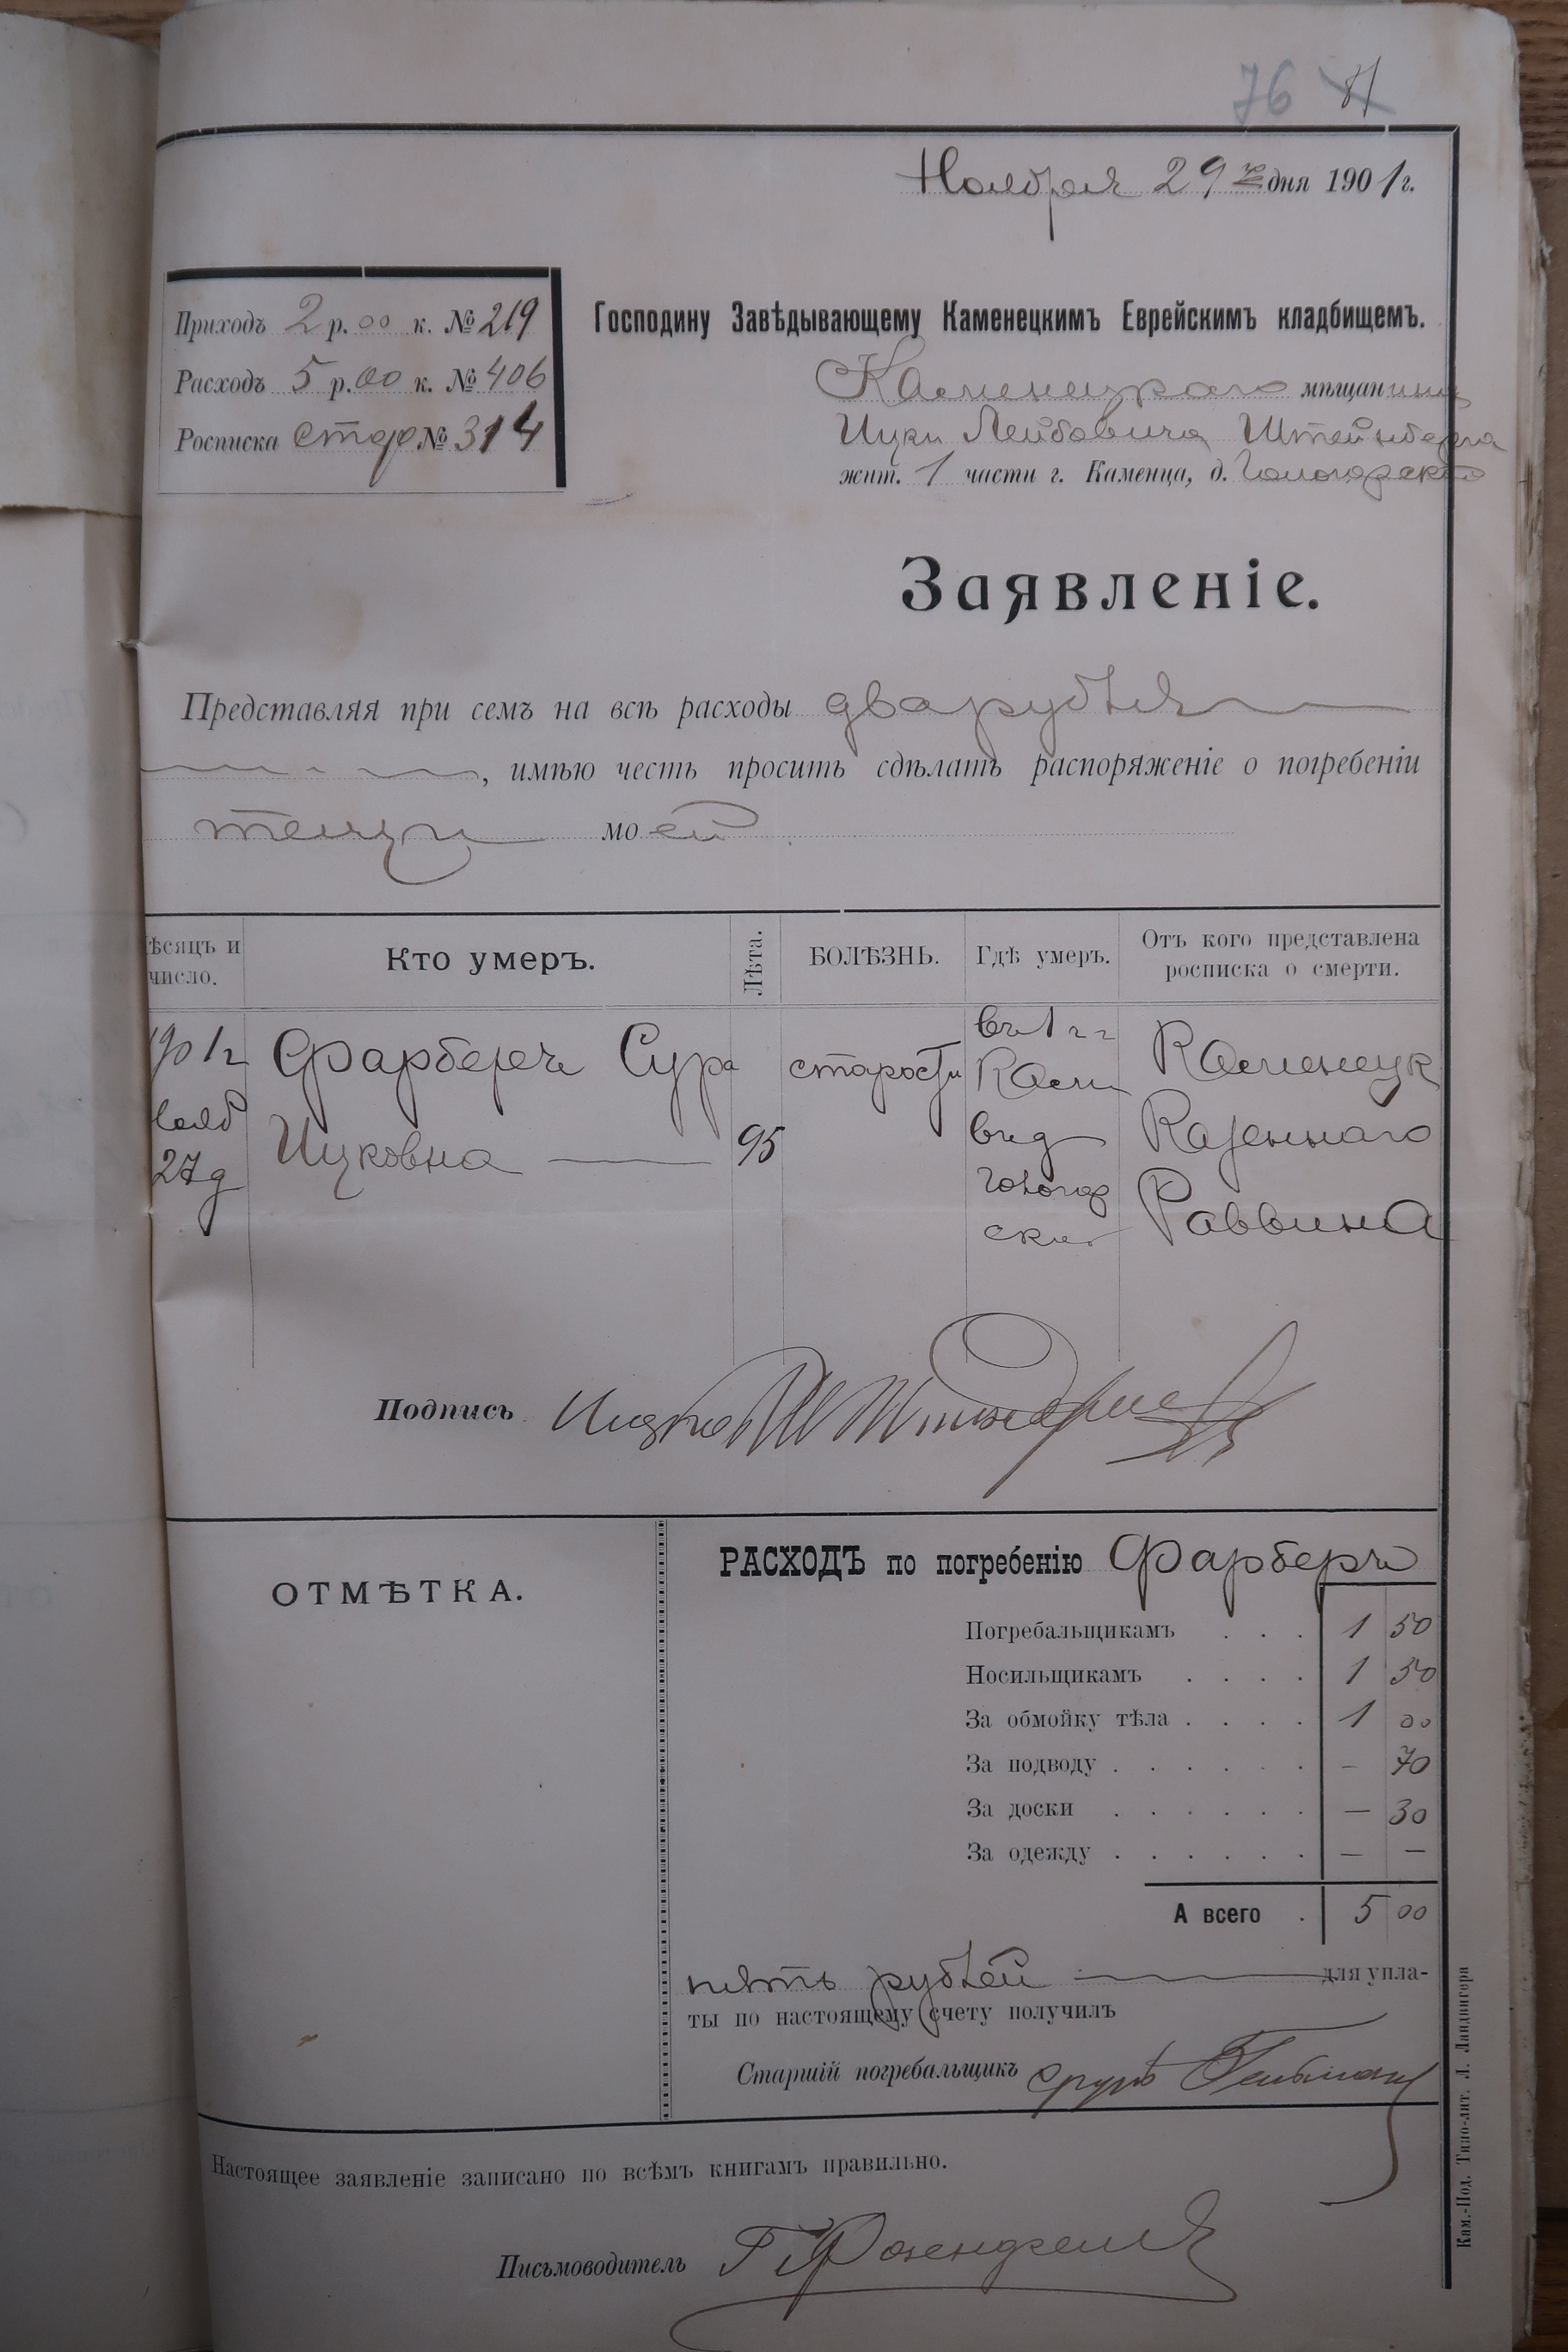 76 81
Ноября 29 го дня 1901 г.
Приходъ 2 р. 00 к. № 219
Расходъ 5 р. 00 к. № 406
Росписка стар № 314
Господину Завѣдывающему Каменецкимъ Еврейскимъ кладбищемъ.
Каменецкаго мѣщанина
Ицки Лейбовича Штейнберга
жит. 1 части г. Каменца, д. Гологорского
Заявленіе.
Представляя при семъ на всѣ расходы два рубля
, имѣю честь просить сдѣлать распоряженіе о погребеніи
тещи моей
ѣсяцъ и число. Кто умеръ. Лѣта. БОЛѢЗНЬ. Гдѣ умеръ. Отъ кого представлена росписка о смерти.
901 г Фарберъ Сура старости въ 1 ч г Каменецк
нояб Ицковна 95 Кам Казеннаго
27 д въ д Гологор ски Раввина
Подпись Ицко
ОТМѢТКА.
РАСХОДЪ по погребенію Фарберъ
Погребальщикамъ . . . 1 50
Носильщикамъ . . . . 1 50
За обмойку тѣла . . . . 1 00
За подводу . . . . . . – 70
За доски . . . . . . — 30
За одежду . . . . . . — —
А всего . 5 00
пять рублей для упла-
ты по настоящему счету получилъ
Старшій погребальщикъ
Настоящее заявленіе записано по всѣмъ книгамъ правильно.
Письмоводитель
Кам.-Под. Типо-лит. Л. Ландвигера